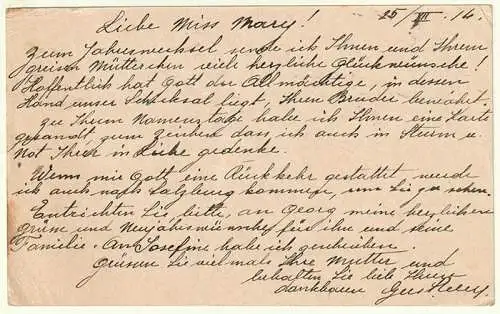 25/XII. 16.
Liebe Miss Mary!
Zum Jahreswechsel sende ich Ihnen und Ihrem
greisen Mütterchen viele herzliche Glückwünsche!
Hoffentlich hat Gott der Allmächtige, in dessen
Hand unser Schicksal liegt, Ihren Bruder bewahrt.
Zu Ihrem Namenstage habe ich Ihnen eine Karte
gesandt zum Zeichen dass ich auch in Sturm u.
Not Ihrer in Liebe gedenke.
Wenn mir Gott eine Rückkehr gestattet, werde
ich auch nach Salzburg kommen, um Sie zu sehen.
Entrichten Sie, bitte, an Georg meine herzlichen
Grüsse und Neujahrswünsche für ihn und seine
Familie. An Josefine habe ich geschrieben.
Grüssen Sie vielmals Ihre Mutter und
behalten Sie lieb Ihren
dankbaren